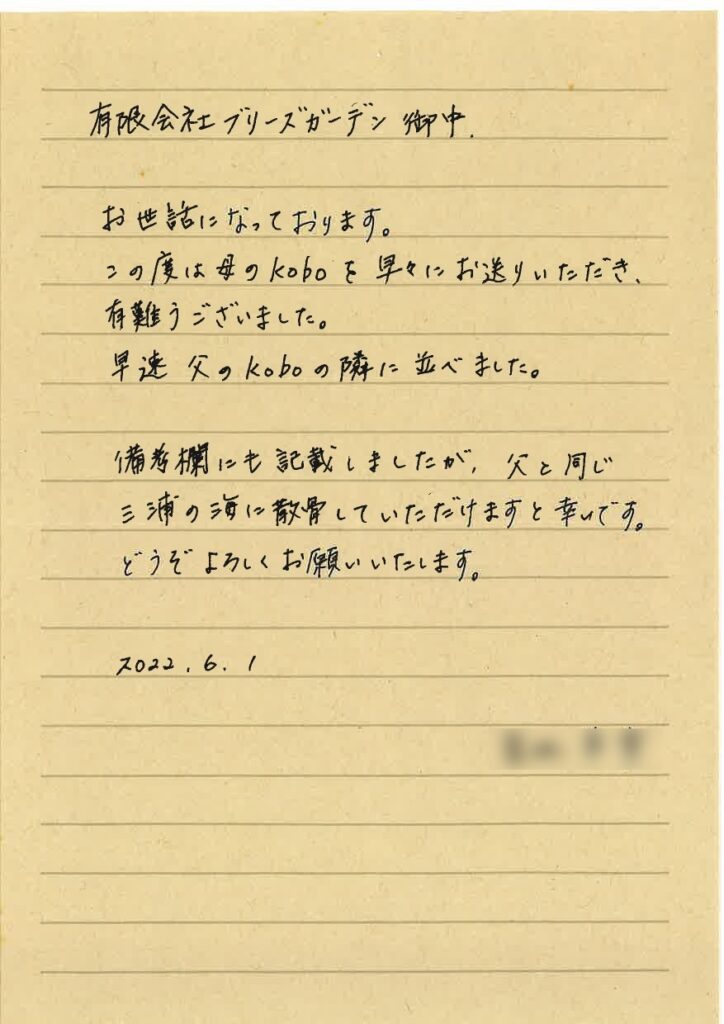 有限会社ブリーズガーデン 御中.
お世話になっております。
この度は母のkoboを早々にお送りいただき、
有難うございました。
早速 父のkoboの隣に並べました。
備考欄にも記載しましたが、父と同じ
三浦の海に散骨していただけますと幸いです。
どうぞよろしくお願いいたします。
2022.6.1